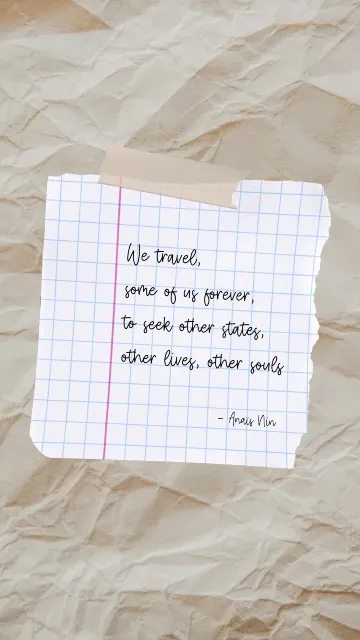 We travel,
some of us forever,
to seek other states,
other lives, other souls
- Anais Nin